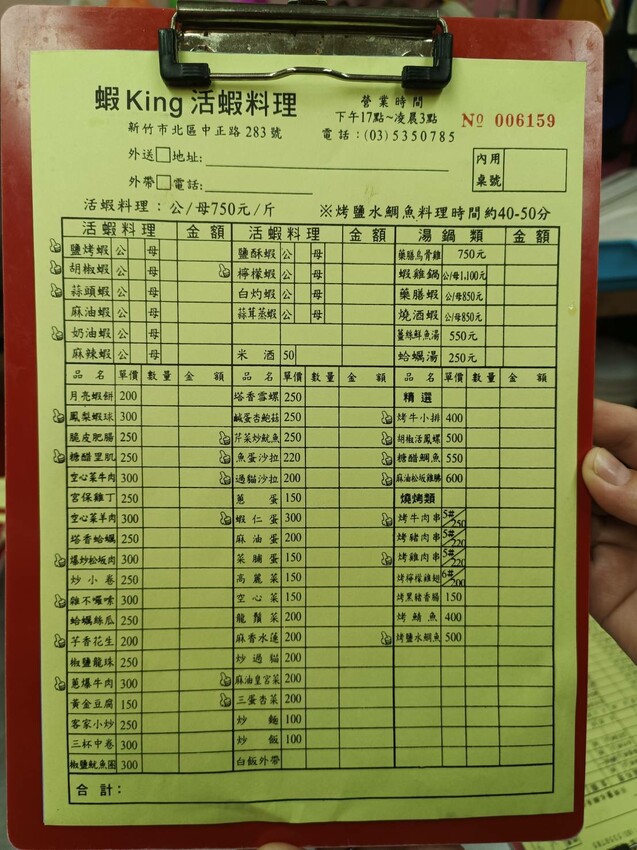 蝦King活蝦料理
營業時間
下午17點~凌晨3點
新竹市北區中正路283號
電話：(03)5350785
Nº 006159
外送□地址：
外帶□電話：
內用
桌號
活蝦料理：公/母750元/斤
※烤鹽水鯛魚料理時間約40-50分
活蝦料理 金額 活蝦料理 金額 湯鍋類 金額
鹽烤蝦 公 母 鹽酥蝦 公 母 藥膳烏骨雞 750元
胡椒蝦 公 母 檸檬蝦 公 母 蝦雞鍋 公/母1,100元
蒜頭蝦 公 母 白灼蝦 公 母 藥膳蝦 公/母850元
麻油蝦 公 母 蒜茸蒸蝦 公 母 燒酒蝦 公/母850元
奶油蝦 公 母 薑絲鮮魚湯 550元
麻辣蝦 公 母 米酒 50 蛤蠣湯 250元
品名 單價 數量 金額 品名 單價 數量 金額 品名 單價 數量 金額
月亮蝦餅 200 塔香雪螺 250 精選
鳳梨蝦球 300 鹹蛋杏鮑菇 250 烤牛小排 400
脆皮肥腸 250 芹菜炒魷魚 250 胡椒活鳳螺 500
糖醋里肌 250 魚蛋沙拉 220 糖醋鯛魚 550
空心菜牛肉 300 過貓沙拉 200 麻油松坂雞胇 600
宮保雞丁 250 蔥蛋 150 燒烤類
空心菜羊肉 300 蝦仁蛋 300 烤牛肉串 5串/250
塔香蛤蠣 250 麻油蛋 200 烤豬肉串 5串/220
爆炒松坂肉 300 菜脯蛋 150 烤雞肉串 5串/220
炒小卷 250 高麗菜 150 烤檸檬雞翅 6隻/200
雜不囉嗦 300 空心菜 150 烤黑豬香腸 150
蛤蠣絲瓜 250 龍鬚菜 200 烤鯖魚 400
芋香花生 200 麻香水蓮 200 烤鹽水鯛魚 500
椒鹽龍珠 250 炒過貓 200
蔥爆牛肉 300 麻油皇宮菜 200
黃金豆腐 150 三蛋杏菜 200
客家小炒 250 炒麵 100
三杯中卷 300 炒飯 100
椒鹽魷魚圈 300 白飯外帶
合計：